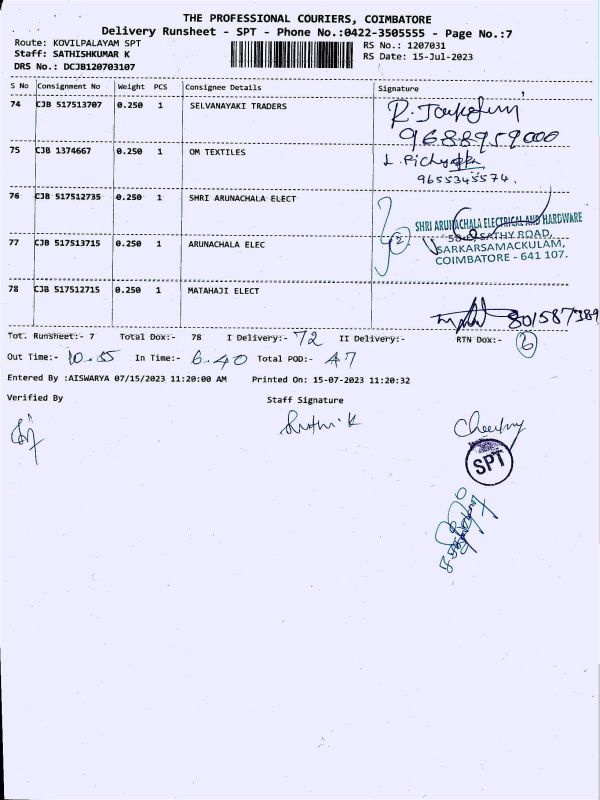 THE PROFESSIONAL COURIERS, COIMBATORE
Delivery Runsheet - SPT - Phone No.:0422-3505555 - Page No.:7
Route: KOVILPALAYAM SPT
RS No.: 1207031
Staff: SATHISHKUMAR K
RS Date: 15-Jul-2023
DRS No.: DCJB120703107
S No Consignment No Weight PCS Consignee Details Signature
74 CJB 517513707 0.250 1 SELVANAYAKI TRADERS
9688959000
75 CJB 1374667 0.250 1 OM TEXTILES L. Pichyappa
9655345574.
76 CJB 517512735 0.250 1 SHRI ARUNACHALA ELECT
SHRI ARUNACHALA ELECTRICAL AND HARDWARE
SATHY ROAD,
77 CJB 517513715 0.250 1 ARUNACHALA ELEC 2 SARKARSAMACKULAM,
COIMBATORE - 641 107.
78 CJB 517512715 0.250 1 MATAHAJI ELECT
801587389
Tot. Runsheet:- 7 Total Dox:- 78 I Delivery:- 72 II Delivery:- RTN Dox:- 6
Out Time:- 10.55 In Time:- 6.40 Total POD:- 47
Entered By :AISWARYA 07/15/2023 11:20:00 AM Printed On: 15-07-2023 11:20:32
Verified By Staff Signature
SPT